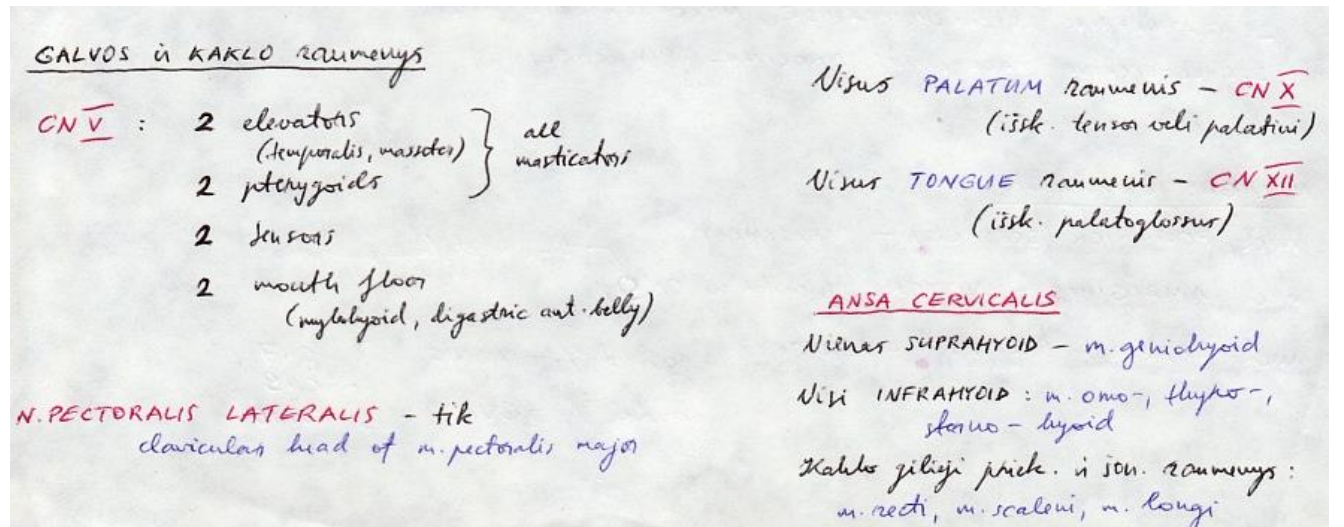 GALVOS ir KAKLO raumenys
CN V : 2 elevators
(temporalis, masseter)
2 pterygoids
all
masticators
2 tensors
2 mouth floor
(mylohyoid, digastric ant. belly)
N. PECTORALIS LATERALIS - tik
clavicular head of m. pectoralis major
Visus PALATUM raumenis - CN X
(išsk. tensor veli palatini)
Visus TONGUE raumenis - CN XII
(išsk. palatoglossus)
ANSA CERVICALIS
Vienas SUPRAHYOID - m. geniohyoid
Visi INFRAHYOID : m. omo-, thyro-,
sterno-hyoid
Kaklo gilieji priek. ir šon. raumenys :
m. recti, m. scaleni, m. longi